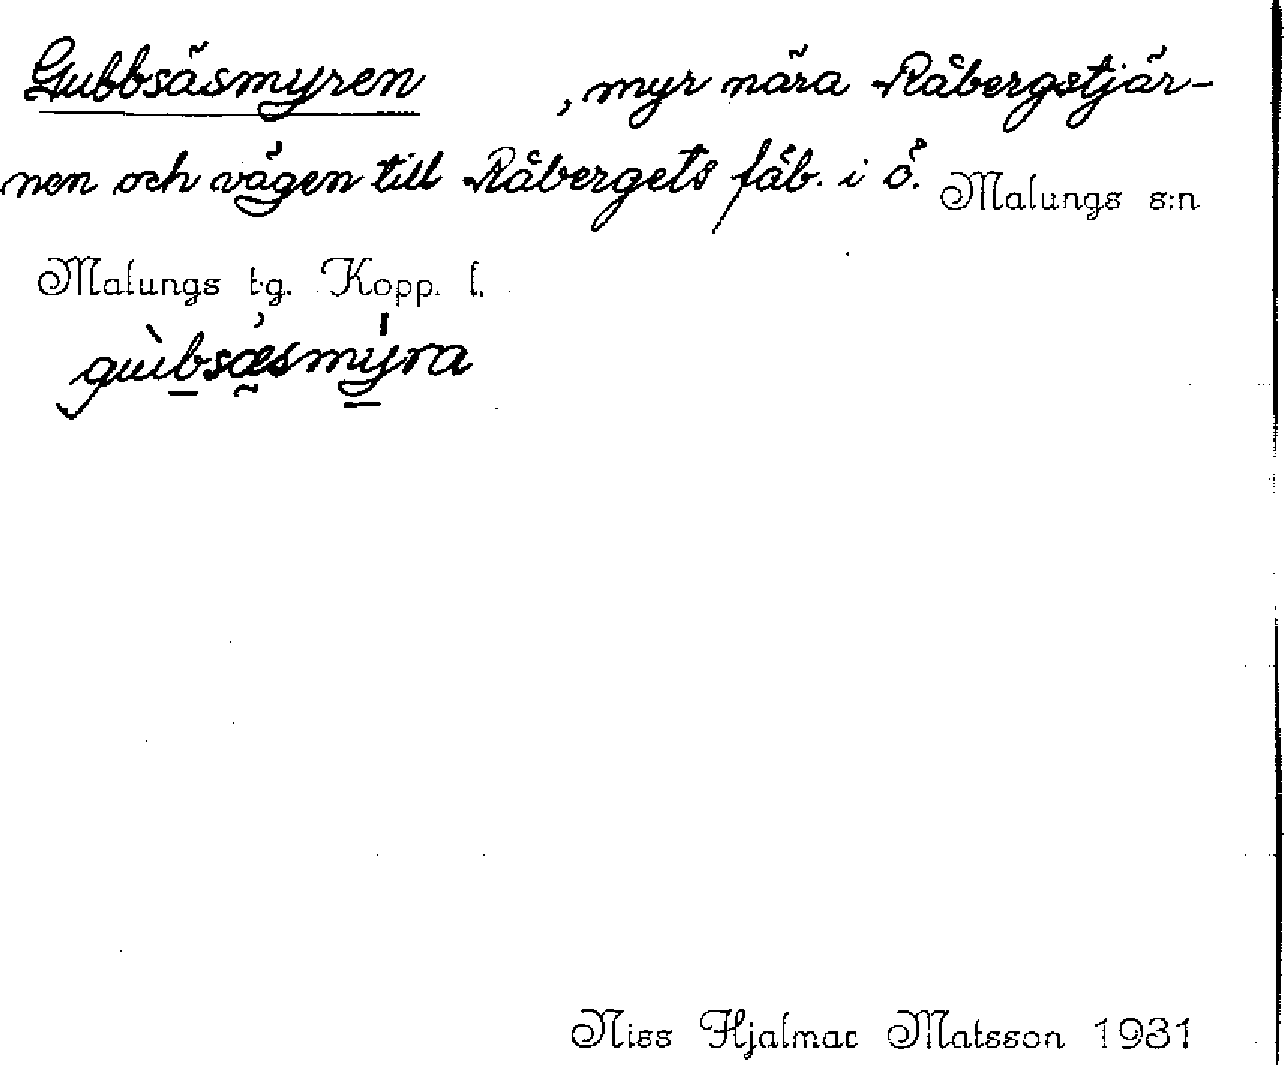 Gubbsäsmyren , myr nära Råbergstjär-
nen och vägen till Råbergets fäb. i ö. Malungs s:n
Malungs t.g. Kopp. l.
gubsæsmýra
Niss Hjalmar Matsson 1931